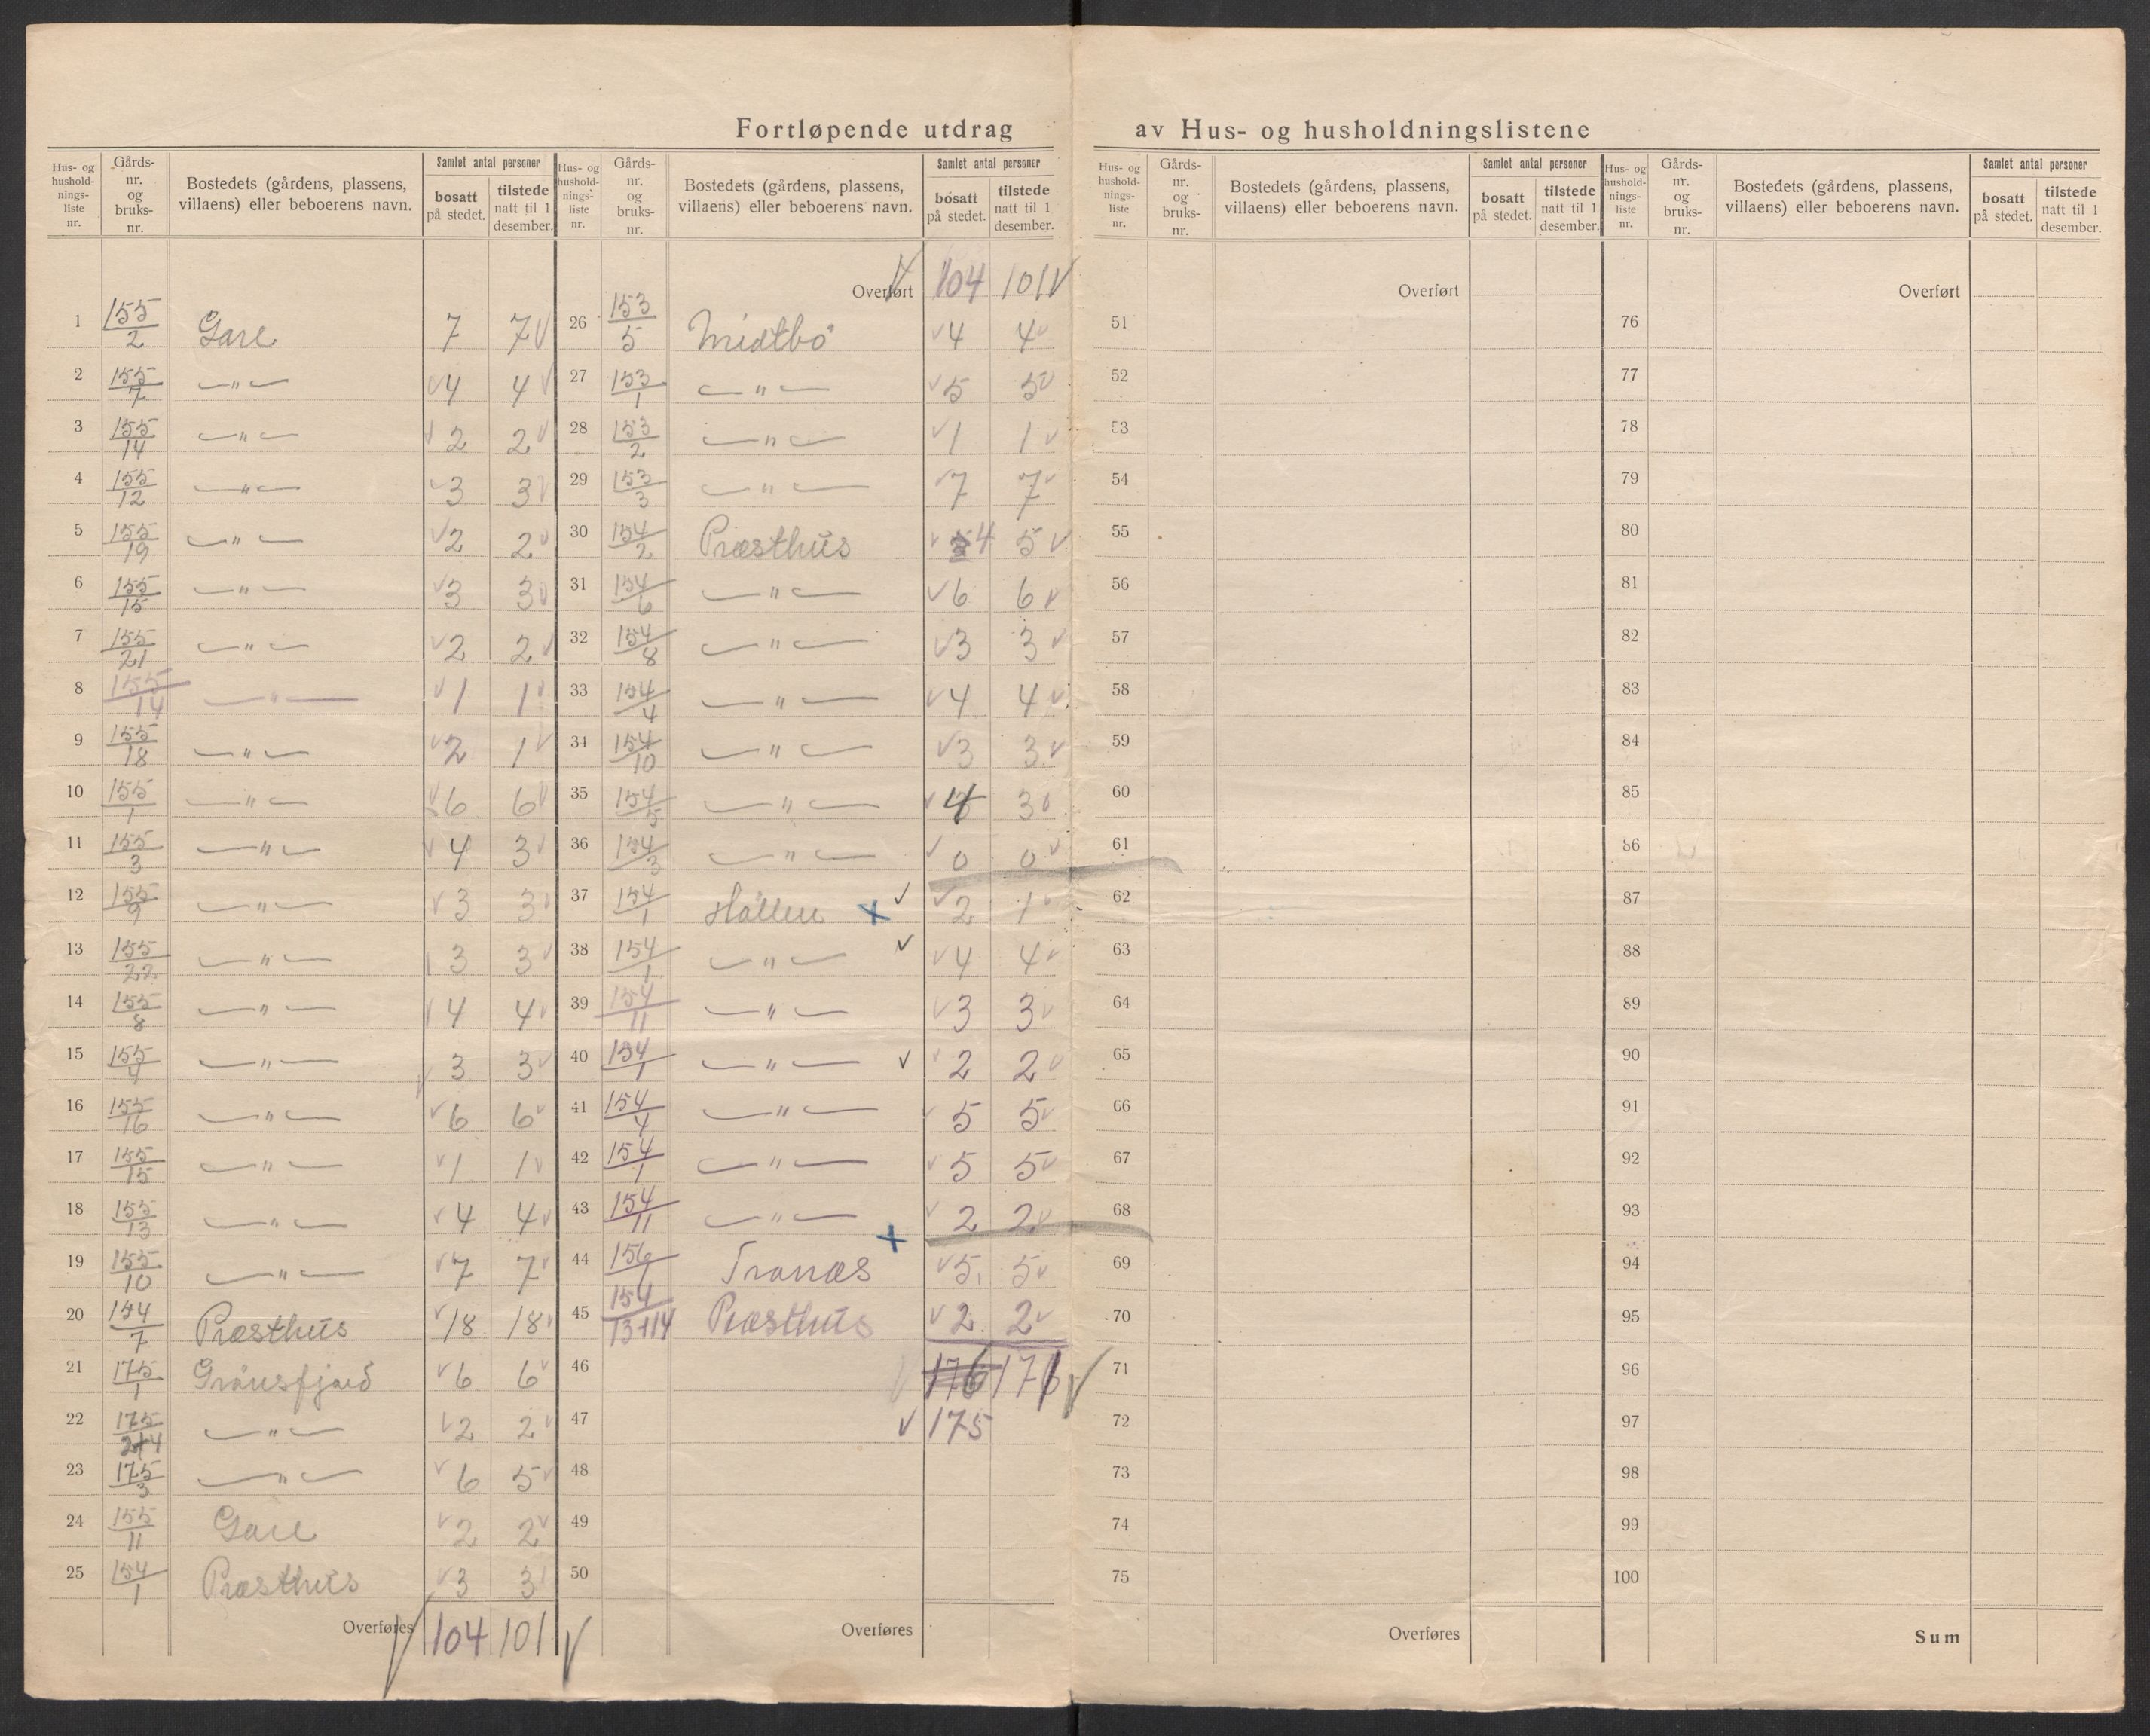 Fortløpende utdrag av Hus- og husholdningslistene
Hus- og hushold- nings- liste nr. | Gårds- nr. og bruks- nr. | Bostedets (gårdens, plassens, villaens) eller beboerens navn. | Samlet antal personer bosatt på stedet. | tilstede natt til 1 desember.
1 155/2 Gare 7 7
2 155/7 —〃— 4 4
3 155/14 —〃— 2 2
4 155/12 —〃— 3 3
5 155/19 —〃— 2 2
6 155/15 —〃— 3 3
7 155/21 —〃— 2 2
8 155/14 —〃— 1 1
9 155/18 —〃— 2 1
10 155/1 —〃— 6 6
11 155/3 —〃— 4 3
12 155/9 —〃— 3 3
13 155/22 —〃— 3 3
14 155/8 —〃— 4 4
15 155/4 —〃— 3 3
16 155/16 —〃— 6 6
17 155/15 —〃— 1 1
18 155/13 —〃— 4 4
19 155/10 —〃— 7 7
20 154/7 Præsthus 18 18
21 175/1 Grånsfjord 6 6
22 175/2+4 —〃— 2 2
23 175/3 —〃— 6 5
24 155/11 Gare 2 2
25 154/1 Præsthus 3 3
Overføres 104 101
Hus- og hushold- nings- liste nr. | Gårds- nr. og bruks- nr. | Bostedets (gårdens, plassens, villaens) eller beboerens navn. | Samlet antal personer bosatt på stedet. | tilstede natt til 1 desember.
Overført 104 101
26 153/5 Midtbø 4 4
27 153/1 —〃— 5 5
28 153/2 —〃— 1 1
29 153/3 —〃— 7 7
30 154/2 Præsthus 4 5
31 154/6 —〃— 6 6
32 154/8 —〃— 3 3
33 154/4 —〃— 4 4
34 154/10 —〃— 3 3
35 154/5 —〃— 4 3
36 154/3 —〃— 0 0
37 154/1 Hållen + 2 1
38 154/1 —〃— 4 4
39 154/11 —〃— 3 3
40 154/1 —〃— 2 2
41 154/4 —〃— 5 5
42 154/1 —〃— 5 5
43 154/11 —〃— 2 2
44 156/1 Tranæs + 5 5
45 154/13+14 Præsthus 2 2
46 176 171
47 175
48
49
50
Overføres
Hus- og hushold- nings- liste nr. | Gårds- nr. og bruks- nr. | Bostedets (gårdens, plassens, villaens) eller beboerens navn. | Samlet antal personer bosatt på stedet. | tilstede natt til 1 desember.
Overført
51
52
53
54
55
56
57
58
59
60
61
62
63
64
65
66
67
68
69
70
71
72
73
74
75
Overføres
Hus- og hushold- nings- liste nr. | Gårds- nr. og bruks- nr. | Bostedets (gårdens, plassens, villaens) eller beboerens navn. | Samlet antal personer bosatt på stedet. | tilstede natt til 1 desember.
Overført
76
77
78
79
80
81
82
83
84
85
86
87
88
89
90
91
92
93
94
95
96
97
98
99
100
Sum